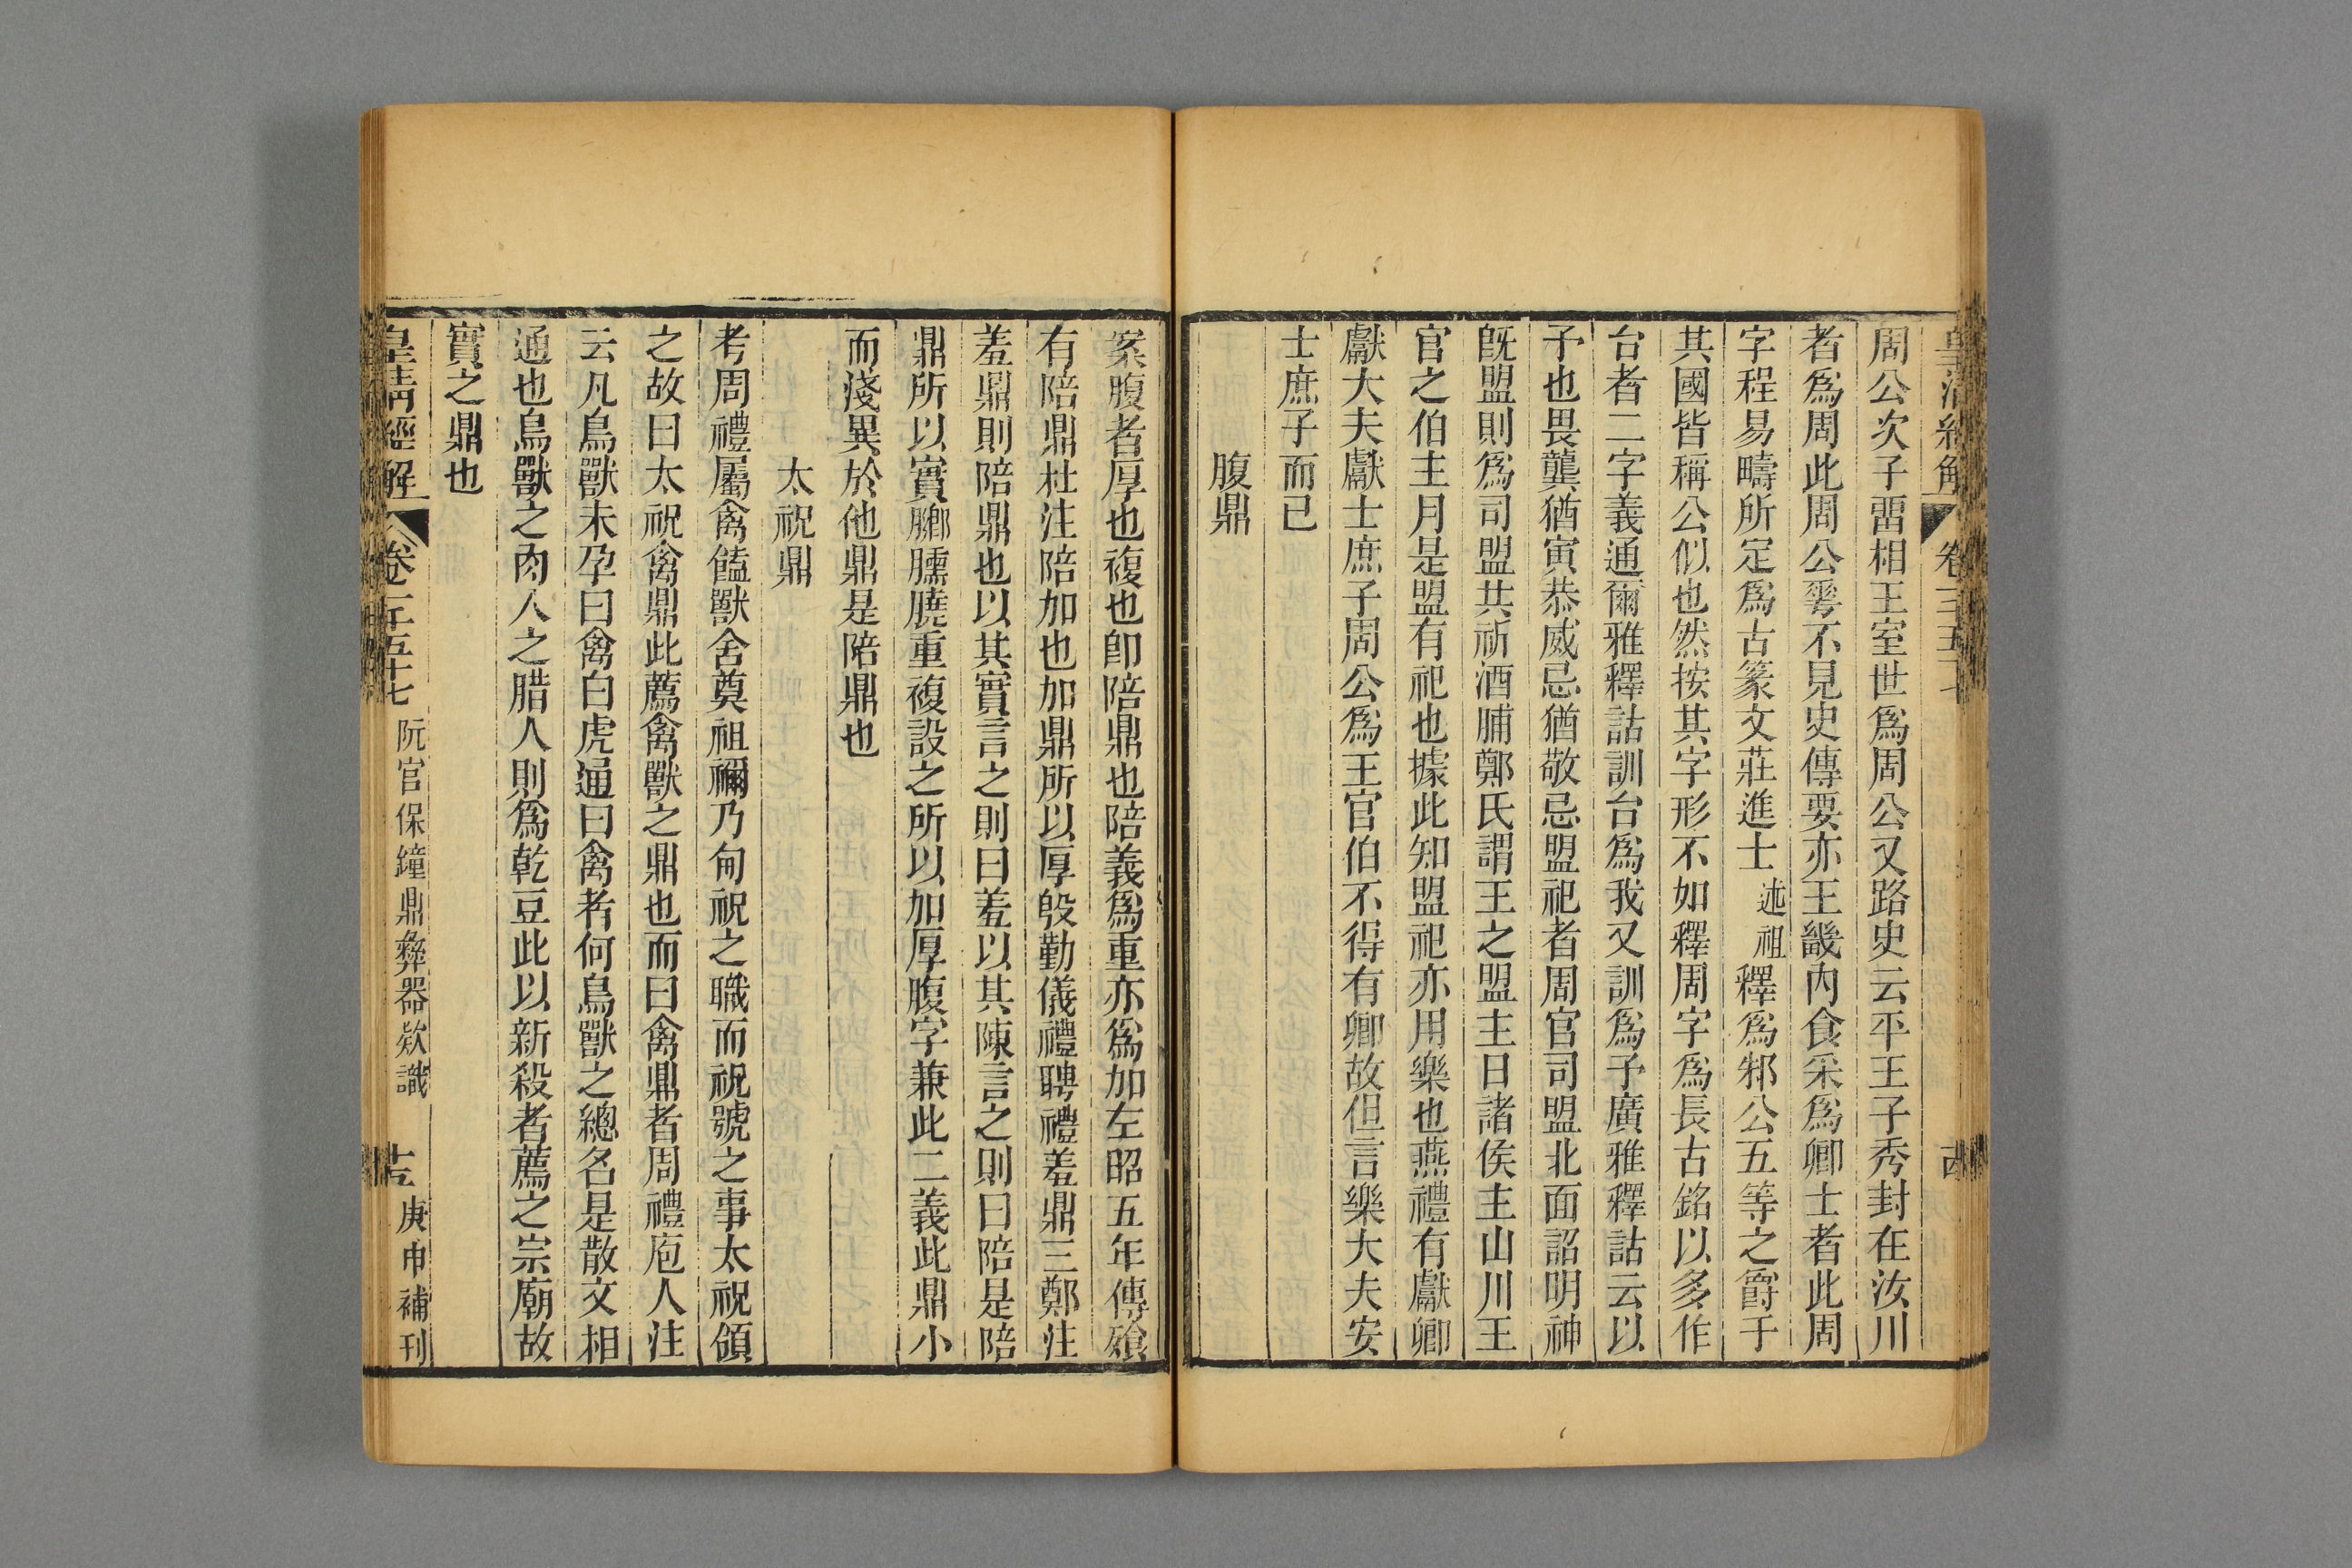 周公次子畱相王室世爲周公又路史云平王子秀封在汝川
者爲周此周公䨓不見史傳要亦王畿內食采爲卿士者此周
字程易疇所定爲古篆文莊進士述祖釋爲邾公五等之爵于
其國皆稱公似也然按其字形不如釋周字爲長古銘以多作
台者二字義通爾雅釋詁訓台爲我又訓爲予廣雅釋詁云以
予也畏龔猶寅恭威忌猶敬忌盟祀者周官司盟北面詔明神
既盟則爲司盟共祈酒脯鄭氏謂王之盟主日諸侯主山川王
官之伯主月是盟有祀也據此知盟祀亦用樂也燕禮有獻卿
獻大夫獻士庶子周公爲王官伯不得有卿故但言樂大夫安
士庶子而已
腹鼎
案腹者厚也複也卽陪鼎也陪義爲重亦爲加左昭五年傳飱
有陪鼎杜注陪加也加鼎所以厚殷勤儀禮聘禮羞鼎三鄭注
羞鼎則陪鼎也以其實言之則曰羞以其陳言之則曰陪是陪
鼎所以實膷臐膮重複設之所以加厚腹字兼此二義此鼎小
而淺異於他鼎是陪鼎也
太祝鼎
考周禮屬禽饁獸舍奠祖禰乃甸祝之職而祝號之事太祝領
之故曰太祝禽鼎此薦禽獸之鼎也而曰禽鼎者周禮庖人注
云凡鳥獸未孕曰禽白虎通曰禽者何鳥獸之總名是散文相
通也鳥獸之肉人之腊人則爲乾豆此以新殺者薦之宗廟故
實之鼎也
皇淸經解 卷一千五十七 阮宫保鐘鼎彝器款識 庚申補刊